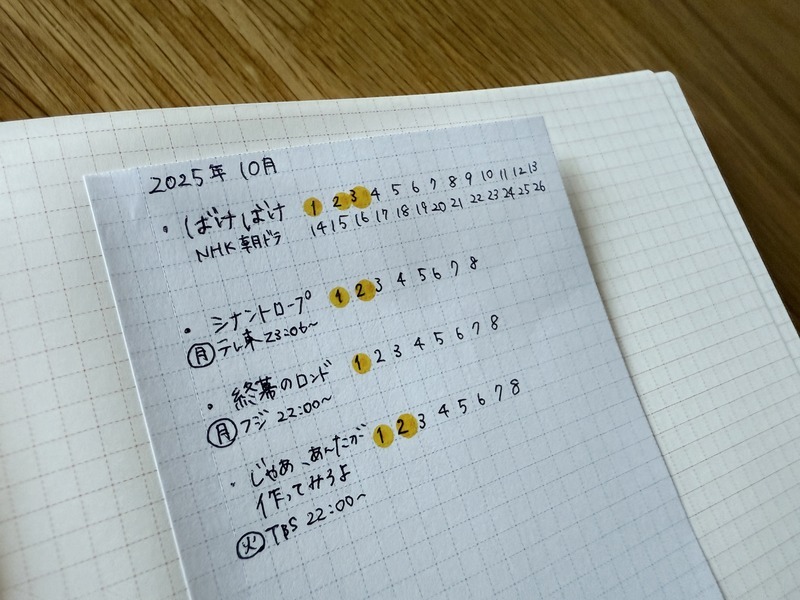 2025年 10月
・ばけばけ 1 2 3 4 5 6 7 8 9 10 11 12 13
NHK 朝ドラ 14 15 16 17 18 19 20 21 22 23 24 25 26
・シナントロープ 1 2 3 4 5 6 7 8
月 テレ東 23:06~
・終幕のロンド 1 2 3 4 5 6 7 8
月 フジ 22:00~
・じゃあ、あんたが 1 2 3 4 5 6 7 8
作ってみろよ
火 TBS 22:00~